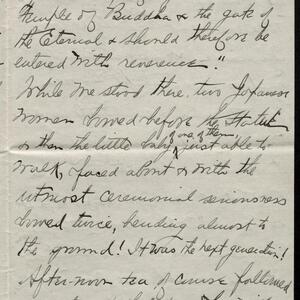 Temple of Buddha & the gate of
the Eternal & should therefore be
entered with reverence."
While we stood there, two Japanese
women bowed before the statue
of one of them
& then the little baby just able to
walk, faced about & with the
utmost ceremonial seriousness
bowed twice, bending almost to
the ground! It was the next generation!
After-noon tea of course followed